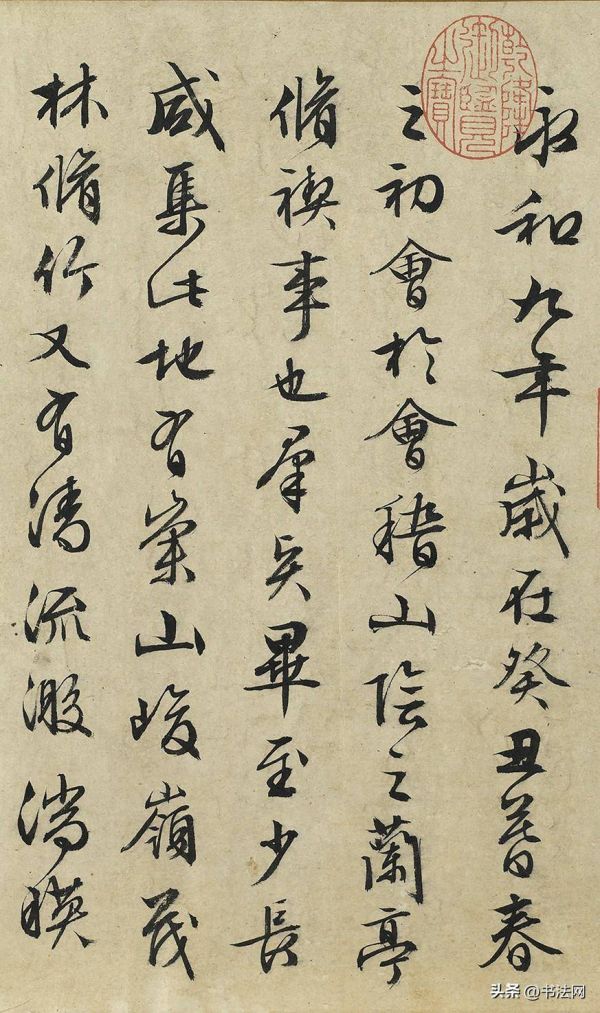 永和九年歲在癸丑暮春
之初會於會稽山陰之蘭亭
脩禊事也羣賢畢至少長
咸集此地有崇山峻嶺茂
林脩竹又有清流激湍暎
乾隆御覽之寶
头条 @书法网